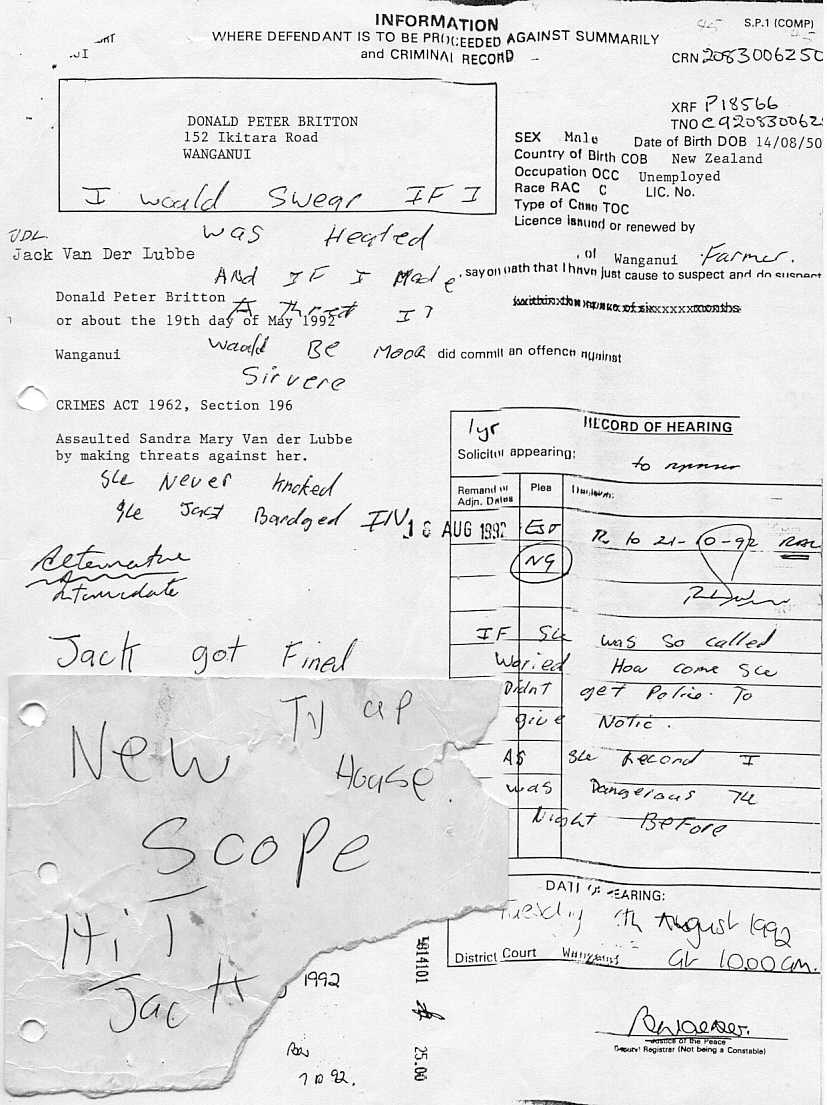 INFORMATION
S.P.1 (COMP)
WHERE DEFENDANT IS TO BE PROCEEDED AGAINST SUMMARILY
and CRIMINAL RECORD
CRN 2083006250
XRF P18566
DONALD PETER BRITTON
152 Ikitara Road
WANGANUI
SEX Male Date of Birth DOB 14/08/50
Country of Birth COB New Zealand
Occupation OCC Unemployed
Race RAC C LIC. No.
Type of TOC
Licence issued or renewed by
I would Swear IF I
was Heated
JDL
Jack Van Der Lubbe
, of Wanganui Farmer.
And IF I Made
, say on oath that I have just cause to suspect and do suspect
Donald Peter Britton
A Threat I?
or about the 19th day of May 1992
Wanganui
would Be Moor
did commit an offence against
Sirvere
CRIMES ACT 1962, Section 196
Assaulted Sandra Mary Van der Lubbe
by making threats against her.
She Never knocked
She Just Bardged IN
Alternative
Intimidate
1yr
RECORD OF HEARING
Solicitor appearing:
Remand or Adjn. Dates
Plea
18 AUG 1992
NG
21-10-92
Jack got Fined
IF She was so called
Waried How come She
Didnt get Police To
give Notic.
As She Recond I
was Dangerous The
Night Before
TV up
House.
New
Scope
HiT
Jack
1992
DATE OF HEARING:
Tuesday August 1992
District Court
at 10.00 am.
4814101
25.00
7 10 92.
Justice of the Peace
Deputy Registrar (Not being a Constable)